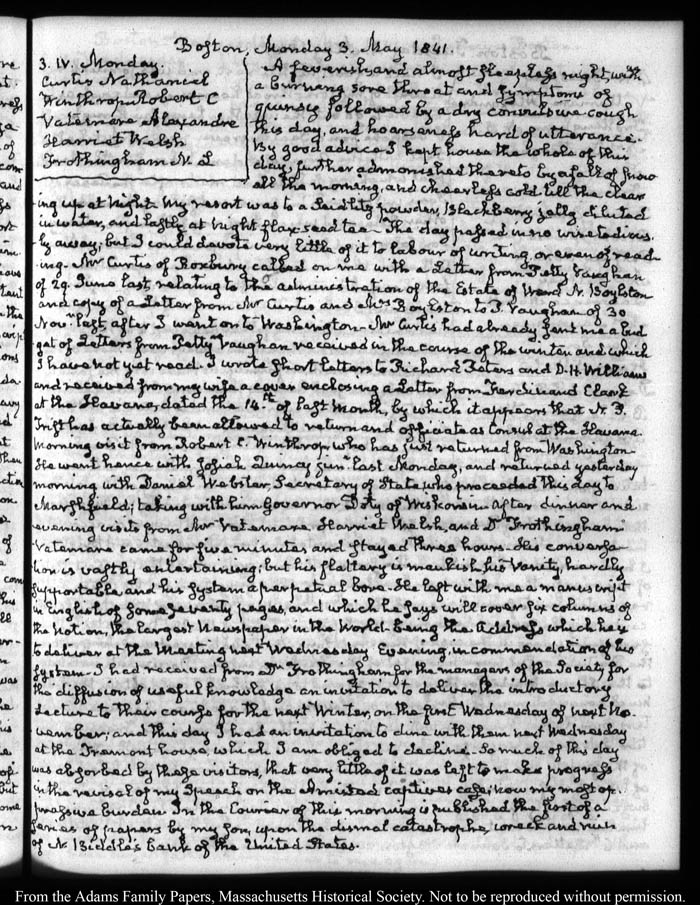 Boston, Monday 3. May 1841.
3. IV. Monday.
Curtis Nathaniel
Winthrop Robert C
Vatemare Alexandre
Harriet Welsh
Frothingham N. L
A feverish, and almost sleepless night, with
a burning sore throat and symptoms of
quinsey followed by a dry convulsive cough
this day, and hoarseness hard of utterance.
By good advice I kept house the whole of this
day, further admonished thereto by a fall of snow
all the morning, and cheerless cold till the clear
ing up at night. My resort was to a Seidlitz powder, Blackberry jelly diluted
in water, and lastly at night flax-seed tea. The day passed in no wise tedious
ly away; but I could devote very little of it to labour of writing, or even of read
ing. Mr Curtis of Roxbury called on me with a Letter from Petty Vaughan
of 29. June last, relating to the administration of the Estate of Ward N. Boylston
and copy of a Letter from Mr Curtis and Mrs Boylston to P. Vaughan of 30
Novr last, after I went on to Washington. Mr Curtis had already sent me a bud
get of Letters from Petty Vaughan received in the course of the winter and which
I have not yet read. I wrote short letters to Richard Peters and D. H. Williams
and received from my wife a cover enclosing a Letter from Ferdinand Clark
at the Havana, dated the 14th of last month, by which it appears that N. P.
Trist has actually been allowed to return and officiate as Consul at the Havana.
Morning visit from Robert C. Winthrop who has just returned from Washington
He went hence with Josiah Quincy junr last Monday, and returned yesterday
morning with Daniel Webster, Secretary of State, who proceeded this day to
Marshfield; taking with him Governor Doty of Wiskonsin. After dinner and
evening visits from Mr Vatemare, Harriet Welsh, and Dr Frothingham
Vatemare came for five minutes and stayed three hours. His conversa
tion is vastly entertaining; but his flattery is mawkish his vanity, hardly
supportable, and his system a perpetual bore. He left with me a manuscript
in English of some seventy pages, and which he says will cover six columns of
the Notion, the largest Newspaper in the World. Being the Address which he is
to deliver at the Meeting next Wednesday Evening, in commendation of his
system. I had received from Dr Frothingham for the managers of the Society for
the diffusion of useful knowledge an invitation to deliver the introductory
Lecture to their course for the next Winter, on the first Wednesday of next No-
vember; and this day I had an invitation to dine with them next Wednesday
at the Tremont house, which I am obliged to decline. So much of this day
was absorbed by these visitors, that very little of it was left to make progress
in the revisal of my Speech on the Amistad captives case; now my most op-
pressive burden. In the Courier of this morning is published the first of a
series of papers by my Son, upon the dismal catastrophe, wreck and ruin
of N. Biddle's bank of the United States.
From the Adams Family Papers, Massachusetts Historical Society. Not to be reproduced without permission.